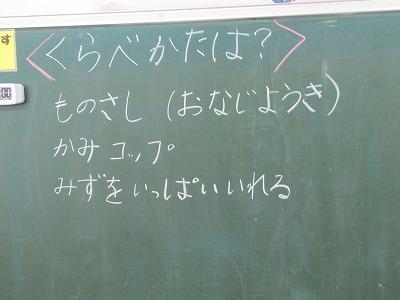 す
<くらべかたは？>
00
ものさし（おなじようき）
かみコップ
みずをいっぱいいれる